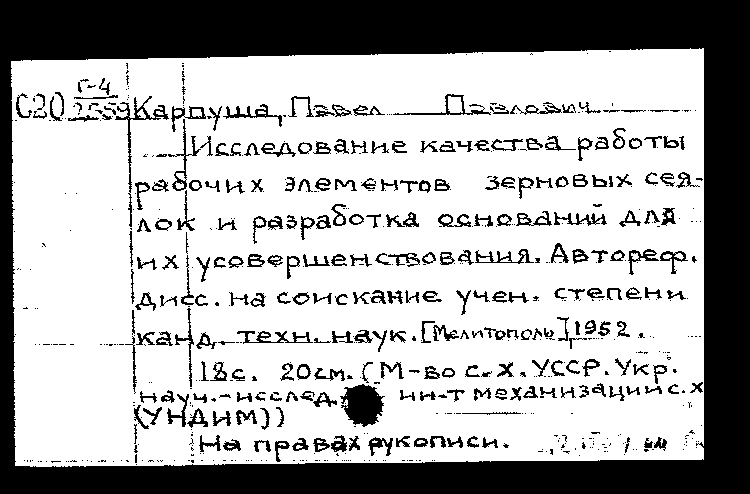 Г-4
С20 2559 Карпуша, Павел Павлович
Исследование качества работы
рабочих элементов зерновых сея-
лок и разработка оснований для
их усовершенствования. Автореф.
дисс. на соискание учен. степени
канд. техн. наук. [Мелитополь], 1952.
18с. 20см. (М-во с.х. УССР. Укр.
науч.-исслед. ин-т механизации с.х
(УНДИМ))
На правах рукописи.